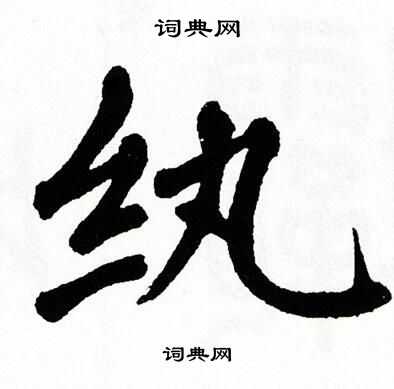 词典网
纨
词典网